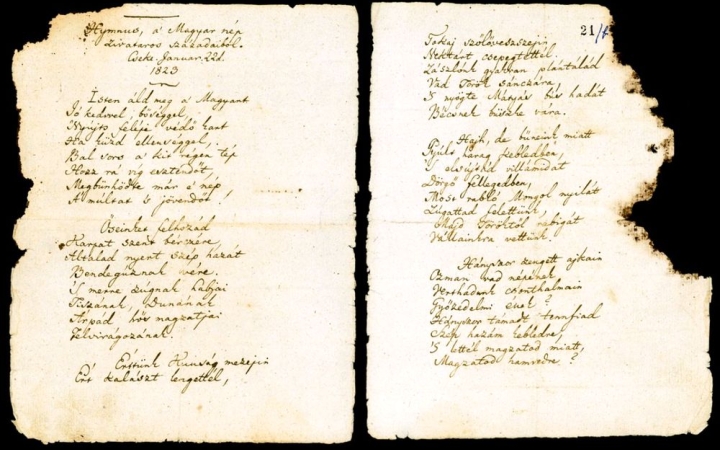 Hymnus, a' Magyar nép
zivataros századaiból.
Cseke. Januar. 22d.
1823
Isten áld meg a Magyart
Jó kedvvel, bőséggel,
Nyújts feléje védő kart
Ha küzd ellenséggel,
Bal sors a' kit régen tép
Hozz rá víg esztendőt,
Megbűnhődte már e' nép
A' múltat 's jövendőt!
Őseinket felhozád
Karpat szent bérczére,
Általad nyert szép hazát
Bendeguznak vére.
'S merre zúgnak habjai
Tiszának, Dunának
Árpád hős magzatjai
Felvirágozának.
Értünk Kunság mezejin
Ért kalászt lengettél,
21/
Tokaj szőlővesszejin
Nektárt csepegtettél.
Zászlónk gyakran plántálád
Vad Török sánczára,
'S nyögte Mátyás bús hadát
Bécsnek büszke vára.
Hajh, de bűneink miatt
Gyúlt harag kebledben,
'S elsújtád villámidat
Dörgő fellegedben,
Most rabló Mongol nyilát
Zúgattad felettünk,
Majd Töröktől rabigát
Vállainkra vettünk.
Hányszor zengett ajkain
Ozman vad népének
Vert hadunk csonthalmain
Győzedelmi ének?
Hányszor támadt tennfiad
Szép hazám kebledre,
'S lettél magzatod miatt,
Magzatod hamvedre?